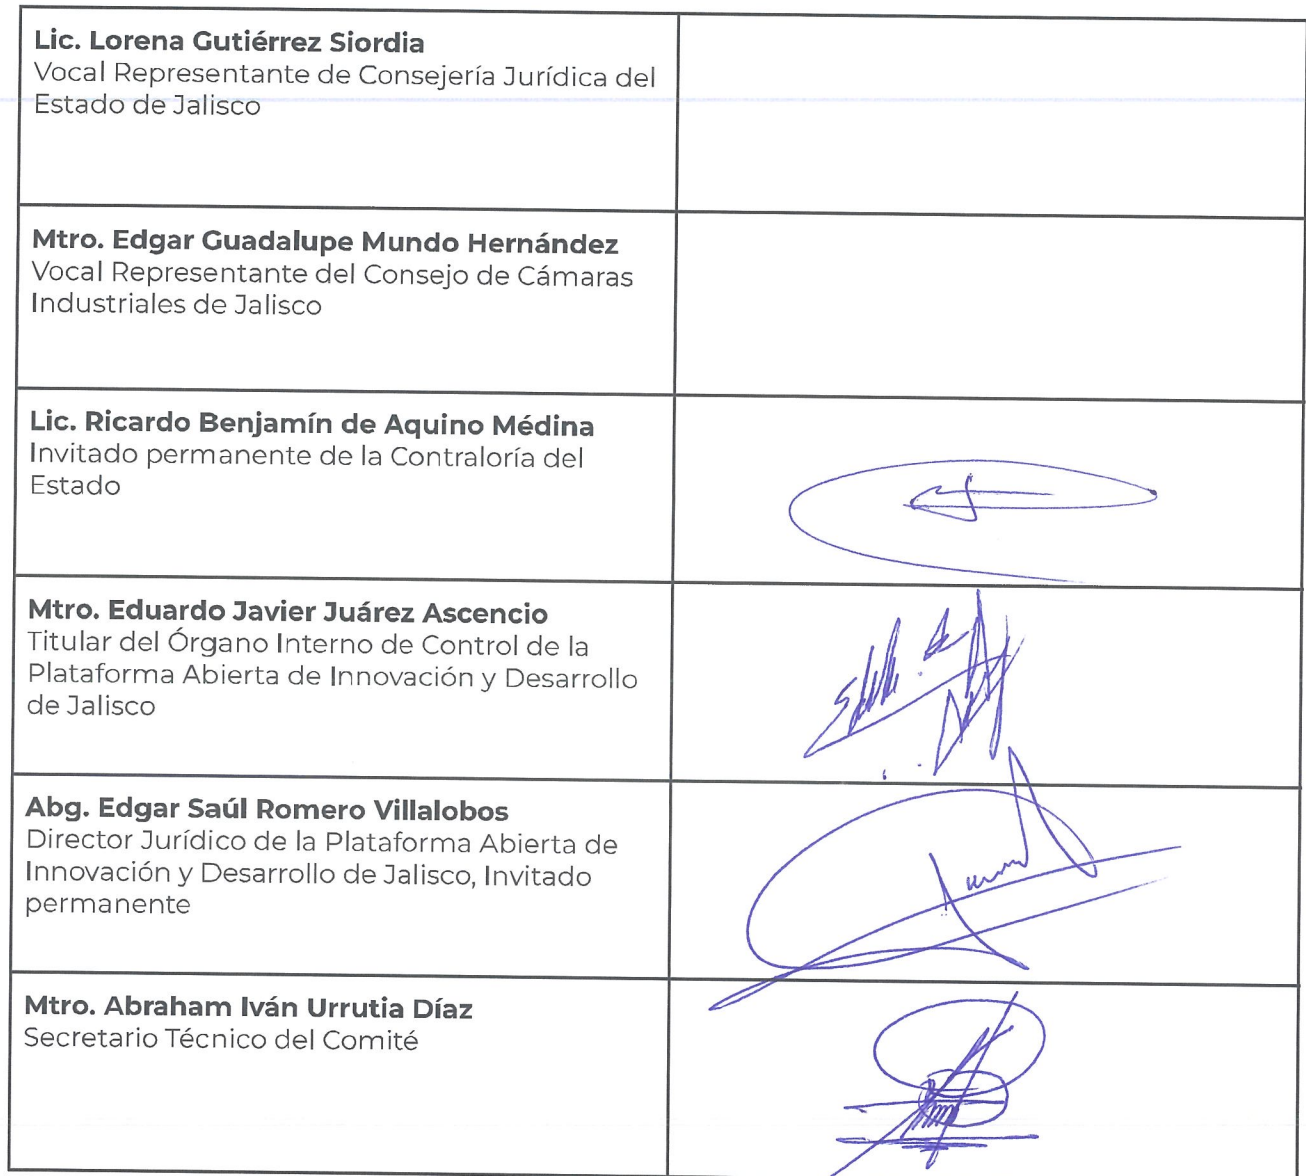 Lic. Lorena Gutiérrez Siordia
Vocal Representante de Consejería Jurídica del
Estado de Jalisco
Mtro. Edgar Guadalupe Mundo Hernández
Vocal Representante del Consejo de Cámaras
Industriales de Jalisco
Lic. Ricardo Benjamín de Aquino Médina
Invitado permanente de la Contraloría del
Estado
Mtro. Eduardo Javier Juárez Ascencio
Titular del Órgano Interno de Control de la
Plataforma Abierta de Innovación y Desarrollo
de Jalisco
Abg. Edgar Saúl Romero Villalobos
Director Jurídico de la Plataforma Abierta de
Innovación y Desarrollo de Jalisco, Invitado
permanente
Mtro. Abraham Iván Urrutia Díaz
Secretario Técnico del Comité